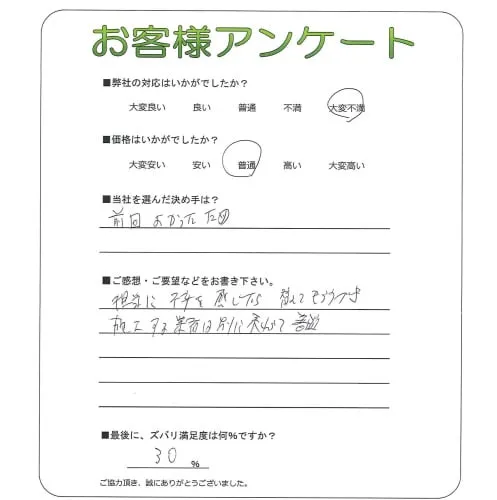 お客様アンケート
■弊社の対応はいかがでしたか?
大変良い 良い 普通 不満 大変不満
■価格はいかがでしたか?
大変安い 安い 普通 高い 大変高い
■当社を選んだ決め手は?
前回 よかった ため
■ご感想・ご要望などをお書き下さい。
担当に 不安を 感じたら 替えて もらうべき
施工する業者は別に
■最後に、ズバリ満足度は何%ですか?
30 %
ご協力頂き、誠にありがとうございました。